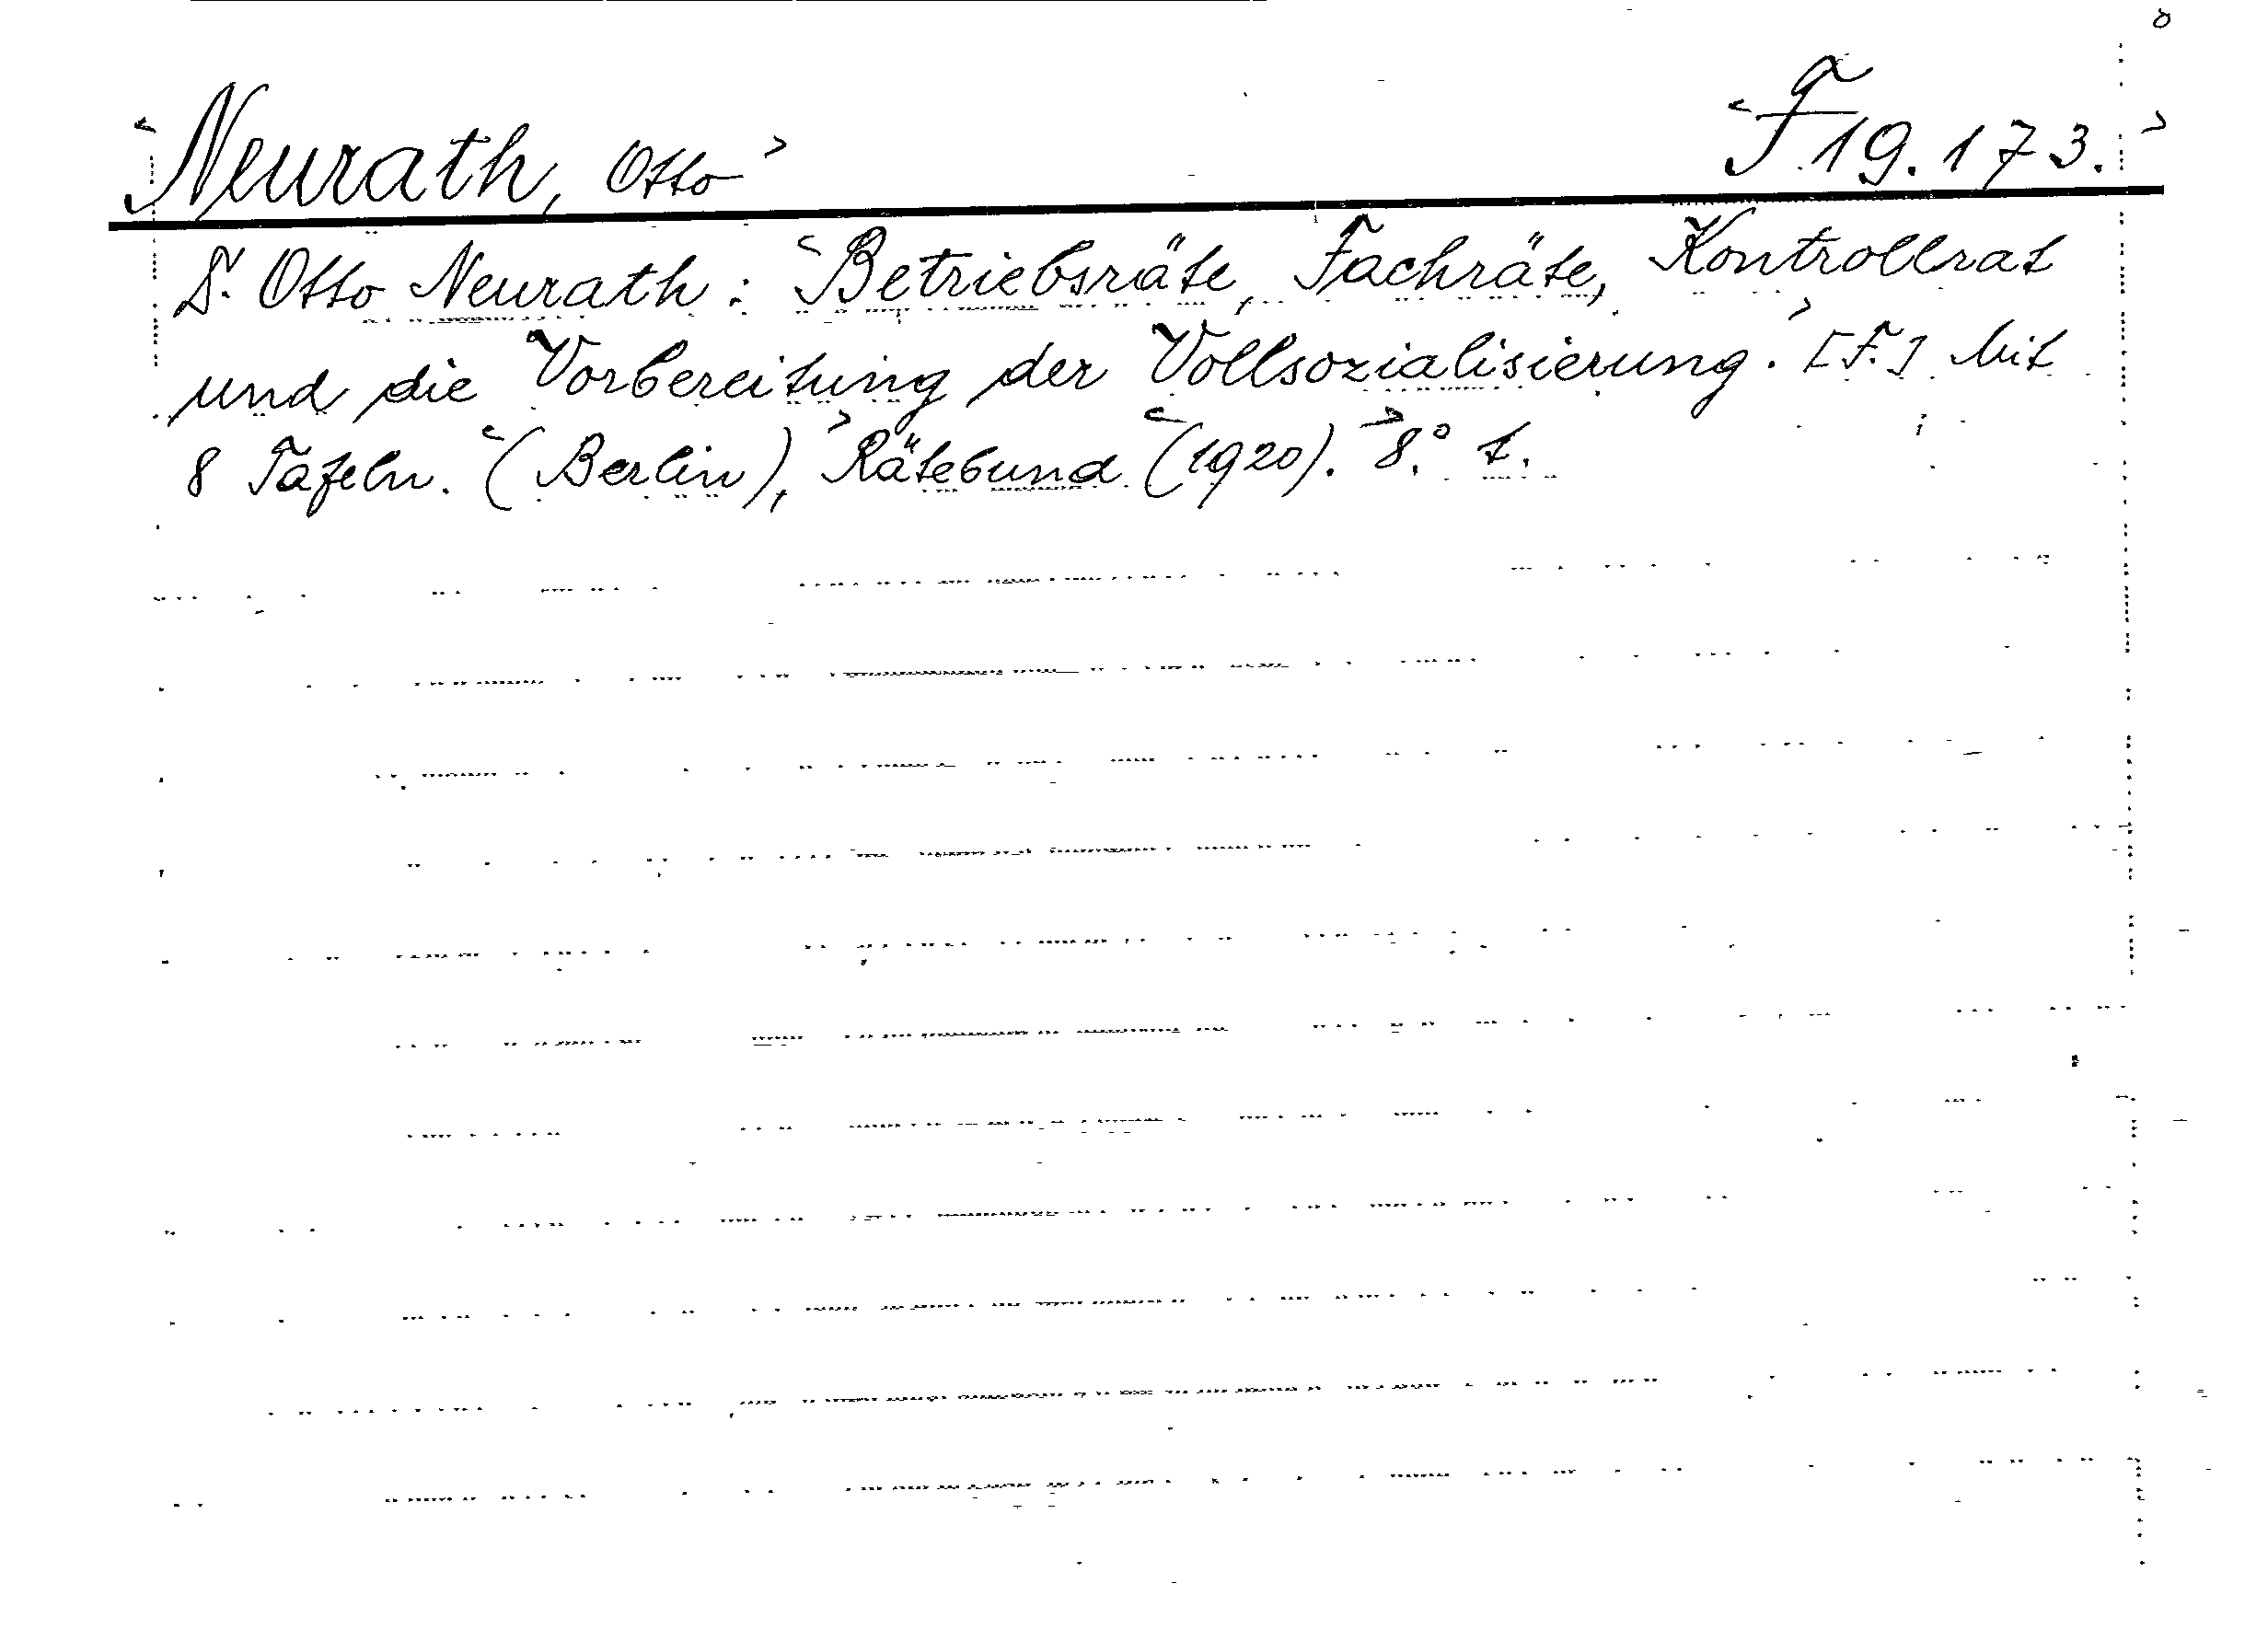 <Neurath, Otto> <F 19.173.>
Dr. Otto Neurath: <Betriebsräte, Fachräte, Kontrollrat
und die Vorbereitung der Vollsozialisierung.> [F.] Mit
8 Tafeln. <(Berlin),> Rätebund <(1920).> 8.°